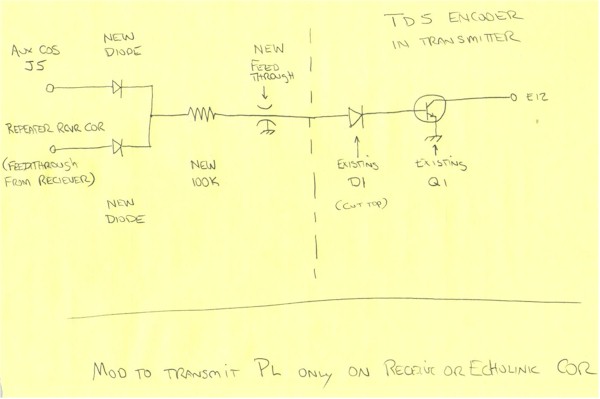 TD5 ENCODER
IN TRANSMITTER
AUX COS
J5
NEW
DIODE
NEW
FEED
THROUGH
E12
REPEATER RCVR COR
(FEEDTHROUGH
FROM RECIEVER)
NEW
100K
EXISTING
D1
(CUT TOP)
EXISTING
Q1
NEW
DIODE
MOD TO TRANSMIT PL ONLY ON RECEIVE OR ECHOLINK COR